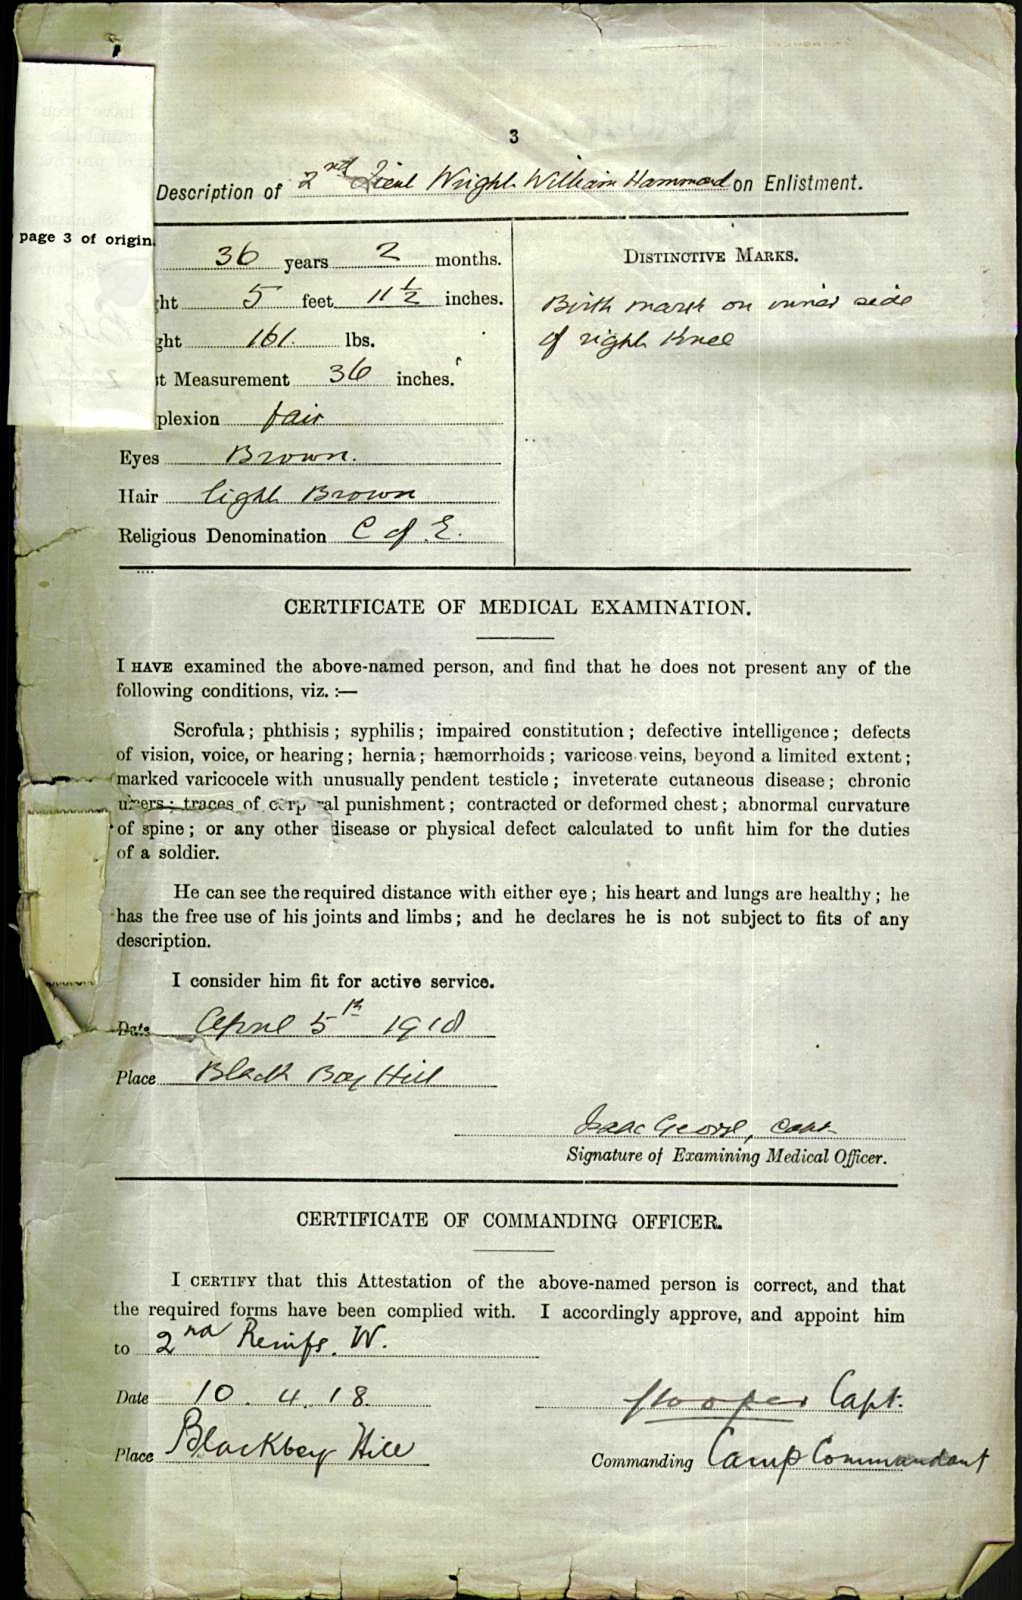 3
Description of 2nd Lieut Wright William Hammond on Enlistment.
page 3 of origin
36 years 2 months.
ght 5 feet 11 1/2 inches.
ght 161 lbs.
t Measurement 36 inches.
plexion fair
Eyes Brown.
Hair light Brown
Religious Denomination C of E.
DISTINCTIVE MARKS.
Birth mark on inner side
of right Knee
CERTIFICATE OF MEDICAL EXAMINATION.
I HAVE examined the above-named person, and find that he does not present any of the
following conditions, viz. :—
Scrofula ; phthisis ; syphilis ; impaired constitution ; defective intelligence ; defects
of vision, voice, or hearing ; hernia ; hæmorrhoids ; varicose veins, beyond a limited extent ;
marked varicocele with unusually pendent testicle ; inveterate cutaneous disease ; chronic
ulcers ; traces of corporal punishment ; contracted or deformed chest ; abnormal curvature
of spine ; or any other disease or physical defect calculated to unfit him for the duties
of a soldier.
He can see the required distance with either eye ; his heart and lungs are healthy ; he
has the free use of his joints and limbs ; and he declares he is not subject to fits of any
description.
I consider him fit for active service.
Date April 5th 1918
Place Black Boy Hill
Isaac George, Capt.
Signature of Examining Medical Officer.
CERTIFICATE OF COMMANDING OFFICER.
I CERTIFY that this Attestation of the above-named person is correct, and that
the required forms have been complied with. I accordingly approve, and appoint him
to 2nd Reinfs. W.
Date 10.4.18.
Capt.
Place Blackboy Hill
Commanding Camp Commandant